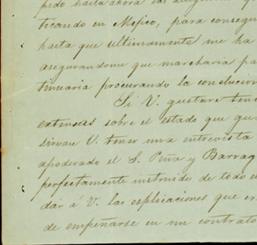 pido hasta ahora las
ticando en Mejico, para conseguir
hasta que ultimamente me ha
asegurandome que marcharia pa
tinuaria procurando la conclucion
Si V. gustare tene
extensas sobre el estado que gu
Sirvase V. tener una entrevista
apoderado el S. Peña y Barrag
perfectamente instruido de todo
dar á V. las esplicaciones que
de empeñarse en un contrato